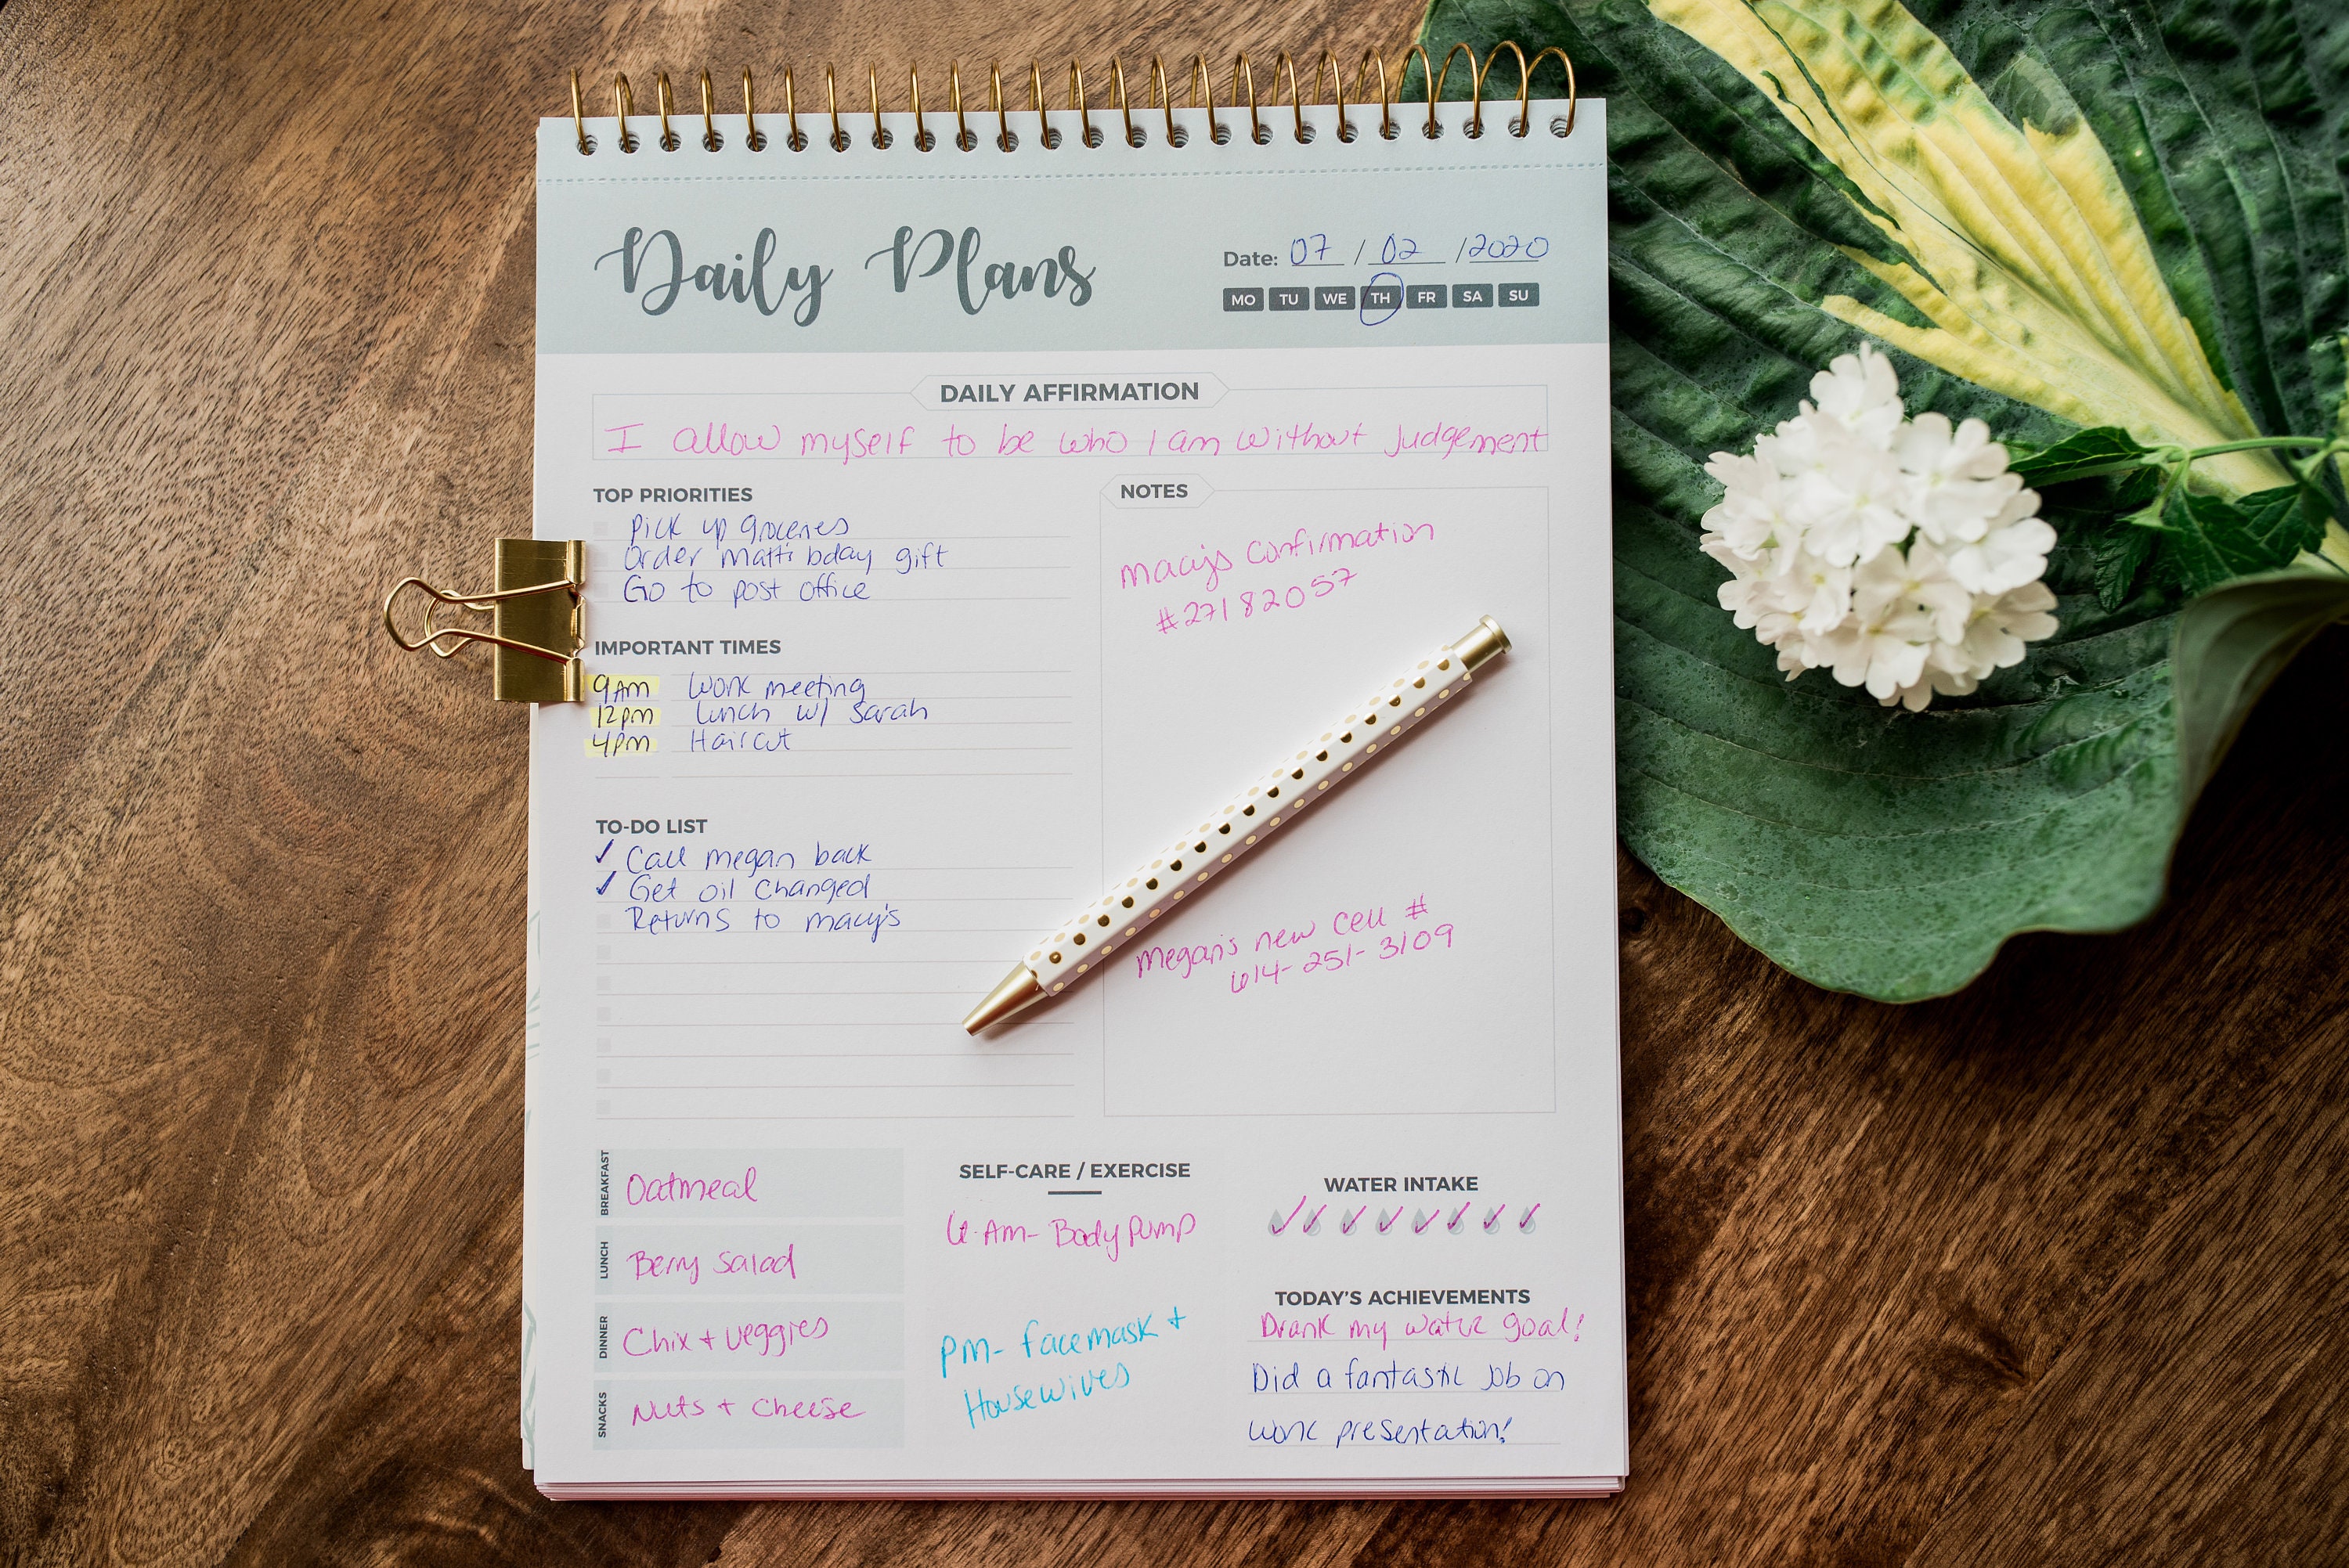 Daily Plans
Date: 07 / 02 / 2020
MO TU WE TH FR SA SU
DAILY AFFIRMATION
I allow myself to be who I am without judgement
TOP PRIORITIES
Pick up groceries
Order Matt's bday gift
Go to post office
IMPORTANT TIMES
9AM Work meeting
12pm Lunch w/ Sarah
4pm Haircut
TO-DO LIST
✓ Call megan back
✓ Get oil changed
Returns to macy's
NOTES
Macy's Confirmation
#27182057
Megan's new cell #
614-251-3109
BREAKFAST Oatmeal
LUNCH Berry Salad
DINNER Chix + veggies
SNACKS Nuts + cheese
SELF-CARE / EXERCISE
6 AM- Body Pump
PM- facemask +
Housewives
WATER INTAKE
✓ ✓ ✓ ✓ ✓ ✓ ✓ ✓
TODAY'S ACHIEVEMENTS
Drank my water goal!
Did a fantastic job on
work presentation!